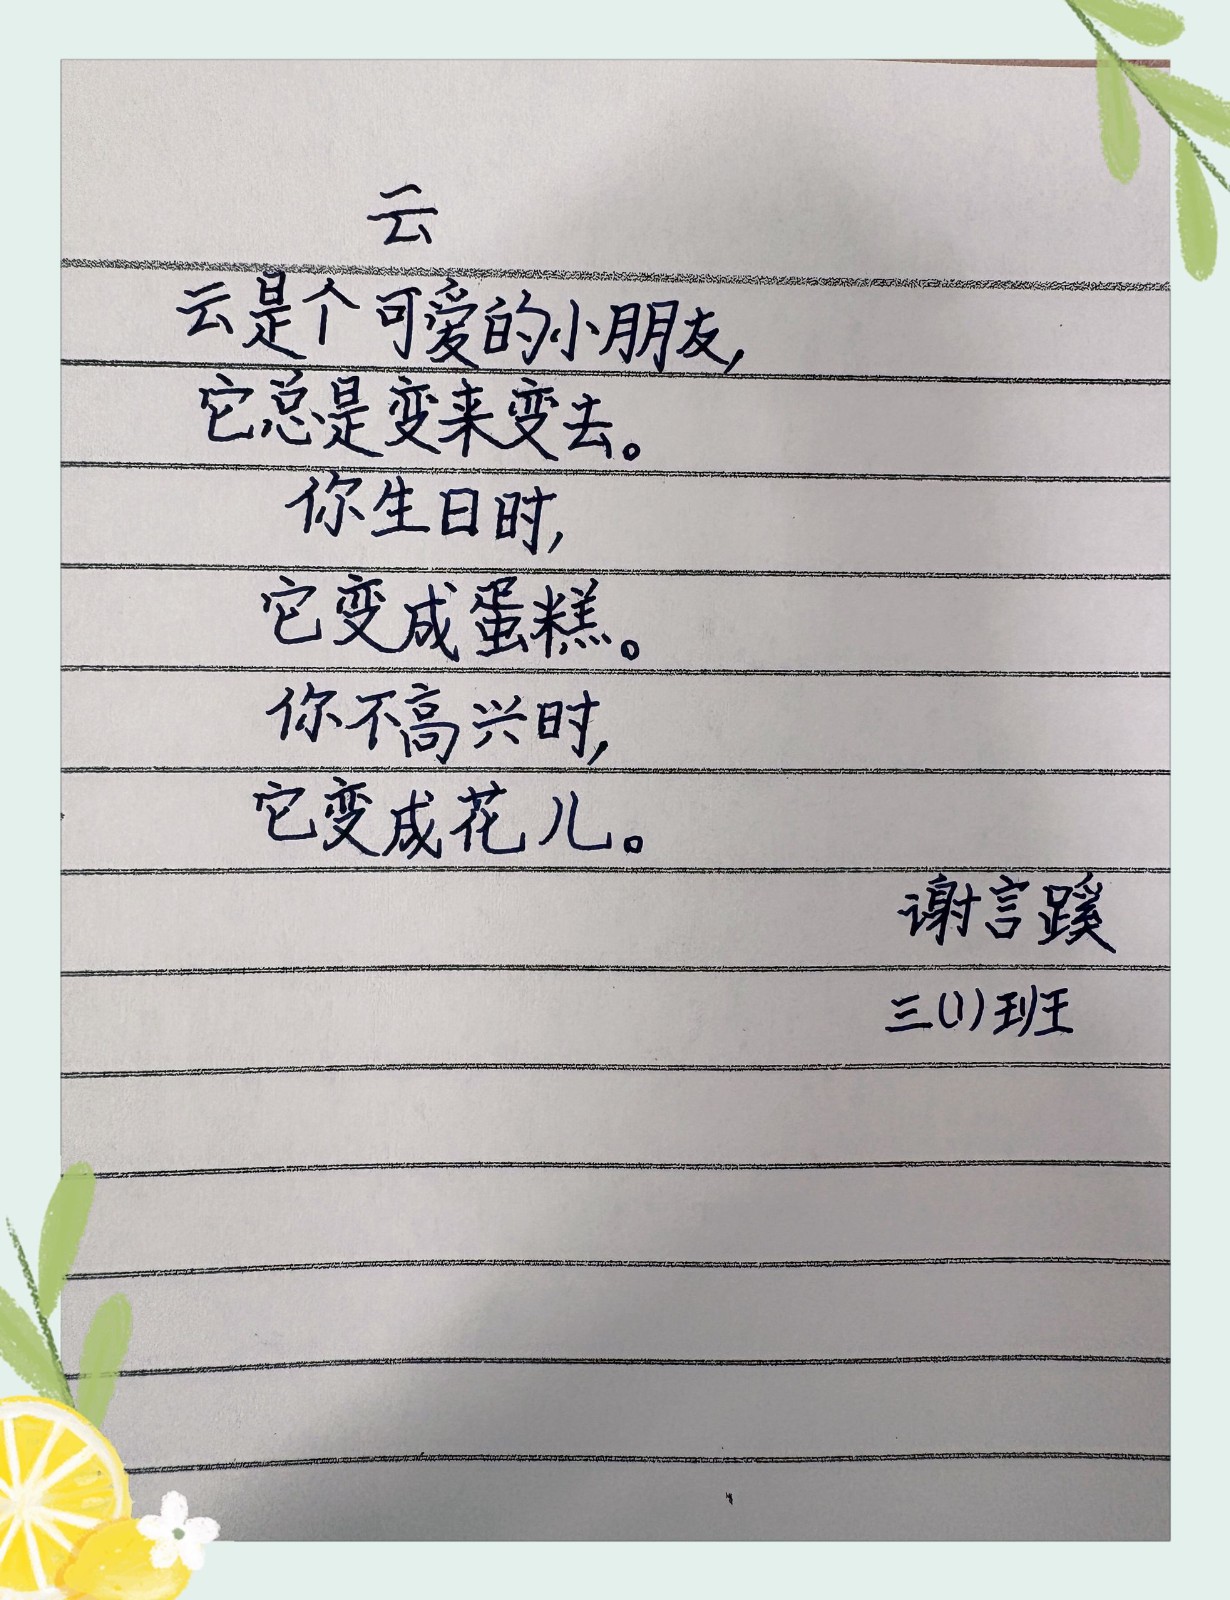 云
云是个可爱的小朋友,
它总是变来变去。
你生日时,
它变成蛋糕。
你不高兴时,
它变成花儿。
谢言蹊
三(1)班